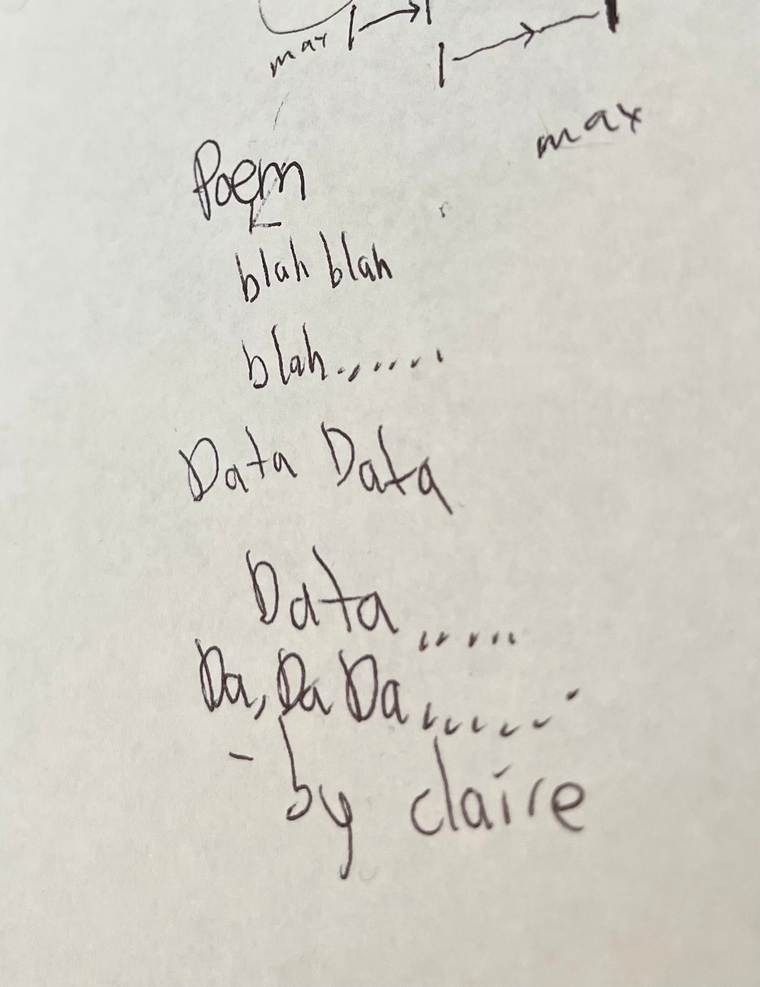 max
max
Poem
blah blah
blah.,.....
Data Data
Data ......
Da, Da Da.......
- by claire